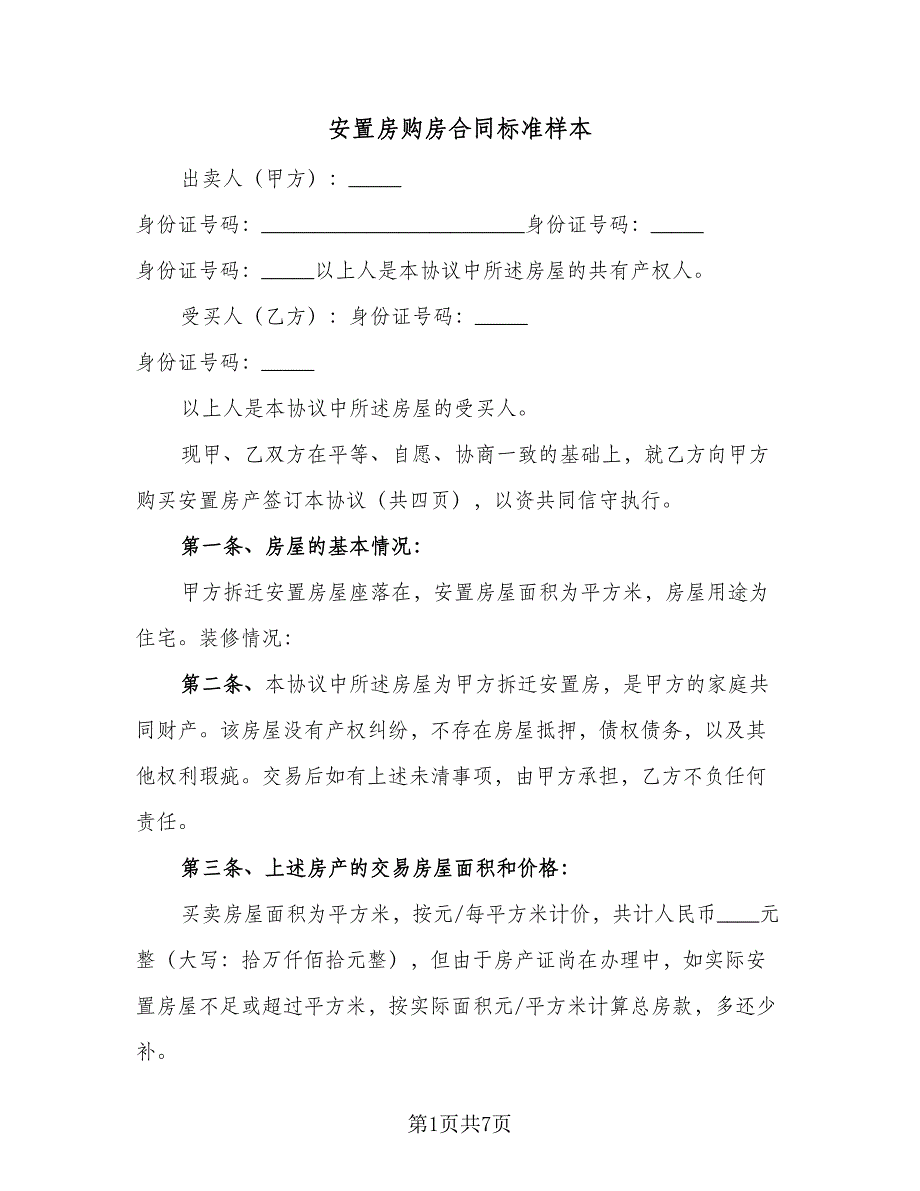 安置房购房合同标准样本
出卖人（甲方）：_____
身份证号码：_________________________身份证号码：_____
身份证号码：_____以上人是本协议中所述房屋的共有产权人。
受买人（乙方）：身份证号码：_____
身份证号码：_____
以上人是本协议中所述房屋的受买人。
现甲、乙双方在平等、自愿、协商一致的基础上，就乙方向甲方
购买安置房产签订本协议（共四页），以资共同信守执行。
第一条、房屋的基本情况：
甲方拆迁安置房屋座落在，安置房屋面积为平方米，房屋用途为
住宅。装修情况：
第二条、本协议中所述房屋为甲方拆迁安置房，是甲方的家庭共
同财产。该房屋没有产权纠纷，不存在房屋抵押，债权债务，以及其
他权利瑕疵。交易后如有上述未清事项，由甲方承担，乙方不负任何
责任。
第三条、上述房产的交易房屋面积和价格：
买卖房屋面积为平方米，按元/每平方米计价，共计人民币____元
整（大写：拾万仟佰拾元整），但由于房产证尚在办理中，如实际安
置房屋不足或超过平方米，按实际面积元/平方米计算总房款，多还少
补。
第1页共7页